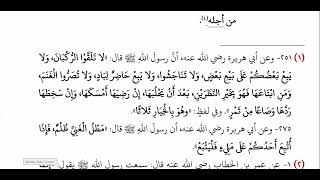 من أجله(٤).
(١) ٢٥١- وعن أبي هريرة رضي الله عنه، أنَّ رسولَ الله ﷺ قال: «لا تَلَقَّوُا الرُّكْبَانَ، وَلا
يَبِعْ بَعْضُكُمْ عَلَى بَيْعِ بَعْضٍ، وَلا تَنَاجَشُوا، وَلا يَبِعْ حَاضِرٌ لِبَادٍ، وَلا تُصَرُّوا الْغَنَمَ،
وَمَنِ ابْتَاعَهَا فَهُوَ بِخَيْرِ النَّظَرَيْنِ، بَعْدَ أَنْ يَحْلُبَهَا، إِنْ رَضِيَهَا أَمْسَكَهَا، وَإِنْ سَخِطَهَا
رَدَّهَا وَصَاعًا مِنْ تَمْرٍ». وفي لفظٍ: «وهو بِالْخِيَارِ ثَلاثًا».
٢٧٥- وعن أبي هريرة رضي الله عنه، أن رسولَ الله ﷺ قال: «مَطْلُ الْغَنِيِّ ظُلْمٌ، فَإِذَا
أُتْبِعَ أَحَدُكُمْ عَلَى مَلِيءٍ فَلْيَتْبَعْ».
(٢) - عن عمر بن الخطاب رضي الله عنه قال: سمعت رسول الله ﷺ يقول: